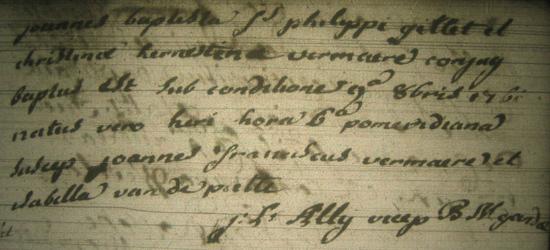 joannes baptista fs philippi gillet et
christinae vermaere conjug
baptus est sub conditione 9a 8bris
natus vero heri hora 6a pomeridiana
suscep joannes franciscus vermaere et
isabella van de putte
Ally vicep